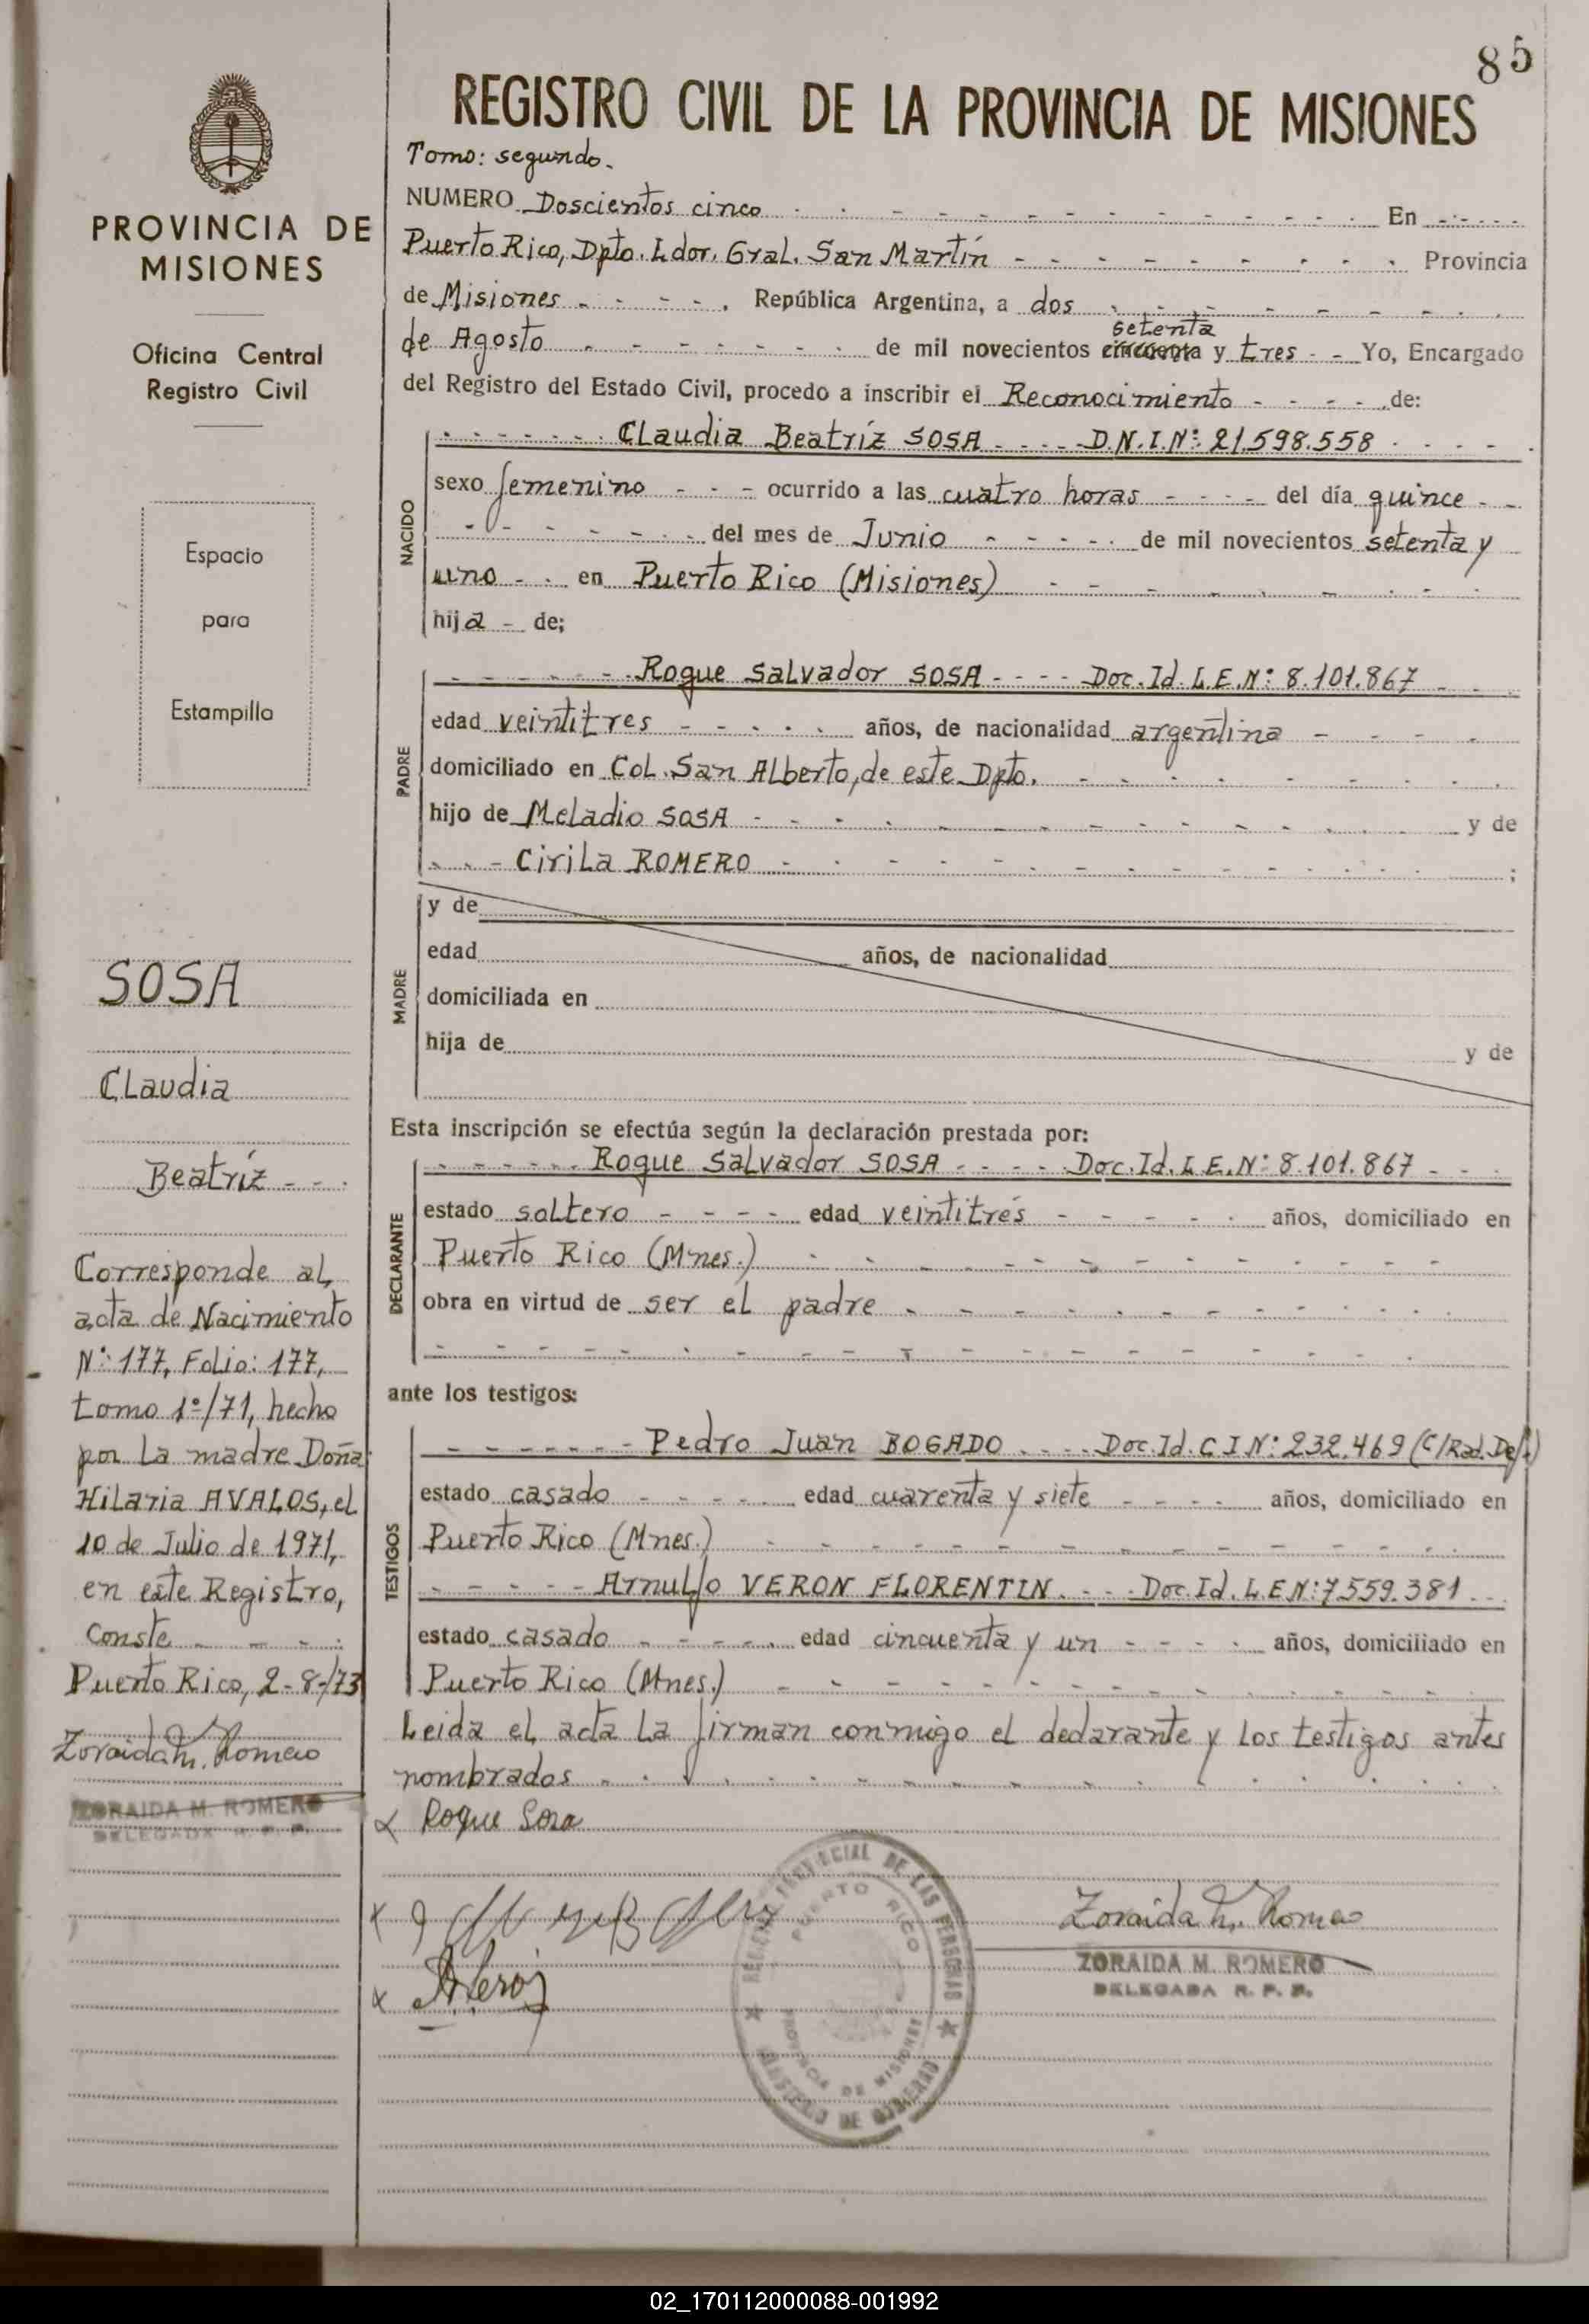 85
REGISTRO CIVIL DE LA PROVINCIA DE MISIONES
Tomo: segundo.
NUMERO Doscientos cinco En
Puerto Rico, Dpto. Ldor. Gral. San Martín Provincia
de Misiones República Argentina, a dos
setenta
de Agosto de mil novecientos cincuenta y tres Yo, Encargado
del Registro del Estado Civil, procedo a inscribir el Reconocimiento de:
Claudia Beatríz SOSA D.N.I.Nº: 21.598.558
NACIDO
sexo femenino ocurrido a las cuatro horas del día quince
del mes de Junio de mil novecientos setenta y
uno en Puerto Rico (Misiones)
hija de;
PADRE
Roque Salvador SOSA Doc. Id. L.E.Nº: 8.101.867
edad veintitres años, de nacionalidad argentina
domiciliado en Col. San Alberto, de este Dpto.
hijo de Meladio SOSA y de
Cirila ROMERO ;
MADRE
y de
edad años, de nacionalidad
domiciliada en
hija de y de
Esta inscripción se efectúa según la declaración prestada por:
DECLARANTE
Roque Salvador SOSA Doc. Id. L.E.Nº: 8.101.867
estado soltero edad veintitrés años, domiciliado en
Puerto Rico (Mnes.)
obra en virtud de ser el padre
ante los testigos:
TESTIGOS
Pedro Juan BOGADO Doc. Id. C I Nº: 232.469 (C/Rad. Def.)
estado casado edad cuarenta y siete años, domiciliado en
Puerto Rico (Mnes.)
Arnulfo VERON FLORENTIN Doc. Id. L.E.Nº: 7.559.381
estado casado edad cincuenta y un años, domiciliado en
Puerto Rico (Mnes.)
Leida el acta la firman conmigo el declarante y los testigos antes
nombrados
x Roque Sosa
x
x
Zoraida M. Romero
ZORAIDA M. ROMERO
DELEGADA R. P. P.
REGISTRO PROVINCIAL DE LAS PERSONAS
PUERTO RICO
PROVINCIA DE MISIONES
MINISTERIO DE GOBIERNO
PROVINCIA DE
MISIONES
Oficina Central
Registro Civil
Espacio
para
Estampilla
SOSA
Claudia
Beatríz
Corresponde al
acta de Nacimiento
Nº: 177, Folio: 177,
tomo 1º/71, hecho
por la madre Doña
Hilaria AVALOS, el
10 de Julio de 1971,
en este Registro,
Conste
Puerto Rico, 2-8-/73
Zoraida M. Romero
ZORAIDA M. ROMERO
DELEGADA R. P. P.
02_170112000088-001992